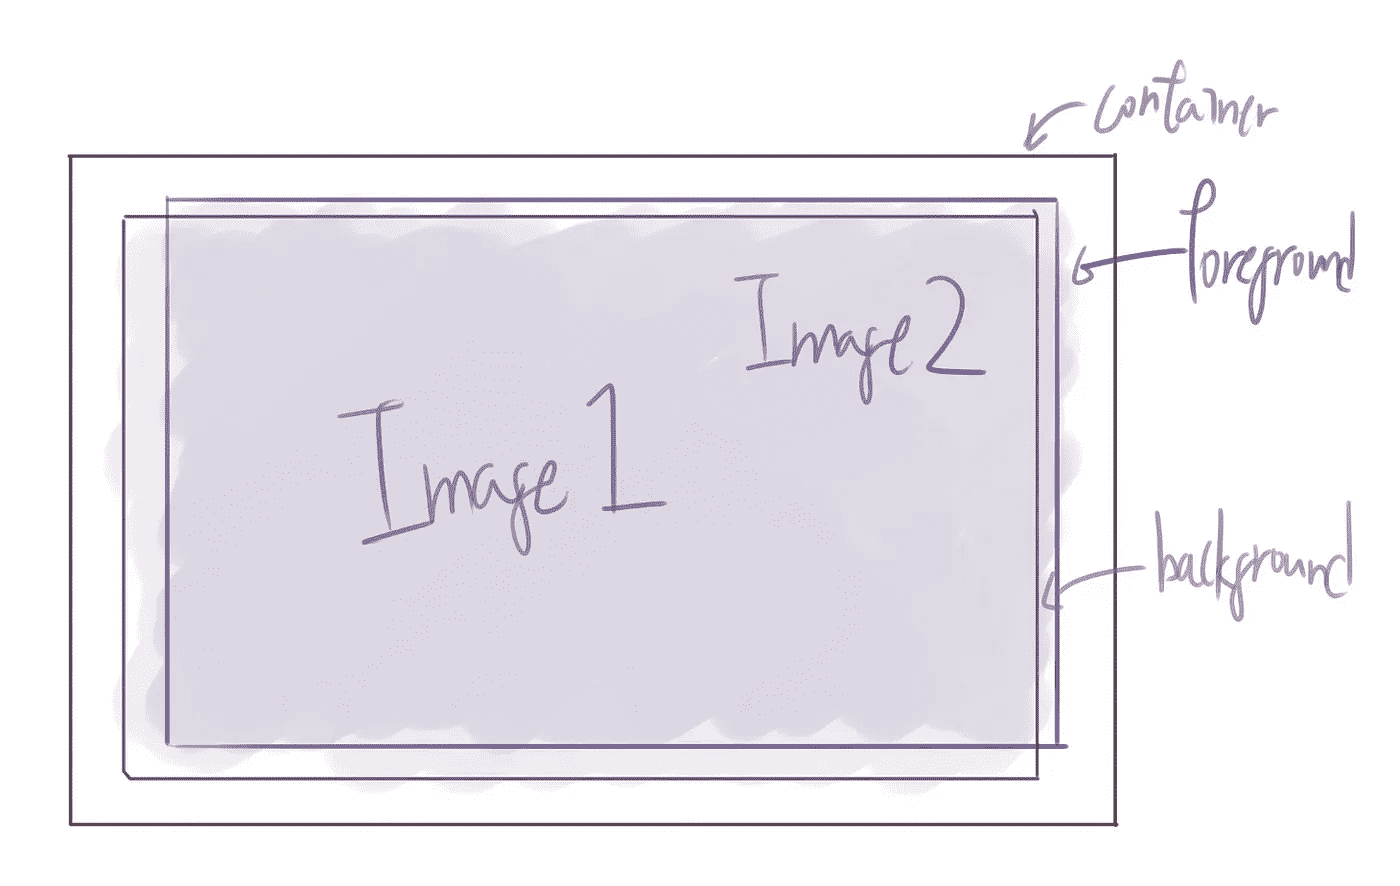 container
foreground
Image 2
Image 1
background